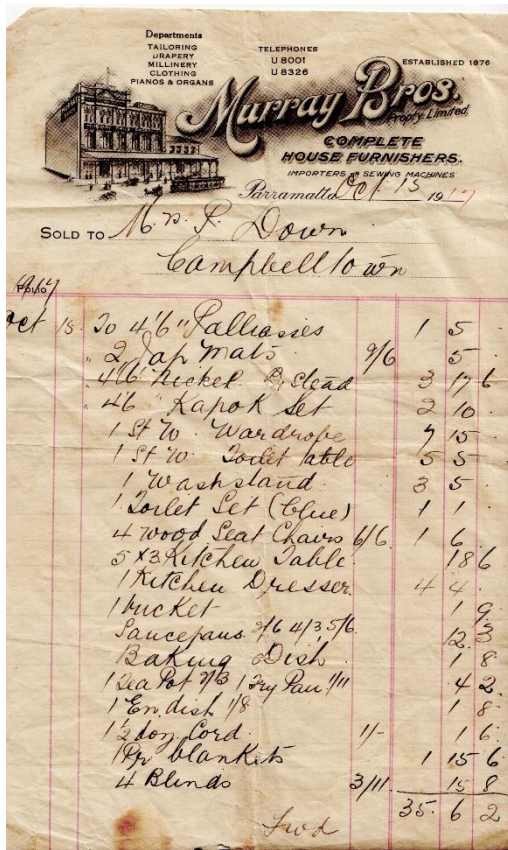 Departments
TAILORING
DRAPERY
MILLINERY
CLOTHING
PIANOS & ORGANS
TELEPHONES
U 8001
U 8326
ESTABLISHED 1876
Murray Bros.
Propty. Limited.
COMPLETE
HOUSE FURNISHERS.
IMPORTERS OF SEWING MACHINES
Parramatta Oct. 15 1917
SOLD TO Mrs. P. Down
Campbelltown
1917
FOLIO
Oct 15 To 4'6" Palliasses 1 5 .
" 2 Jap Mats 2/6 5 .
" 4'6" Nickel B, stead 3 17 6
" 4'6" Kapok Set 2 10 .
1 St W. Wardrobe 7 15
1 St W. Toilet Table 5 5
1 Washstand 3 5
1 Toilet Set (blue) 1 1 .
4 Wood Seat Chairs 6/6 1 6 .
5 x 3 Kitchen Table 18 6
1 Kitchen Dresser 4 4 .
1 bucket 1 9
Saucepans 2/6 4/3 5/6 12.3
Baking Dish 1 8
1 Tea Pot 2/3 1 Fry Pan 1/11 4 2
1 En. dish 1/8 1 8
1½ doz Cord 1/- 1 6
1 Pr blankets 1 15 6
4 Blinds 3/11 15 8
35. 6 2